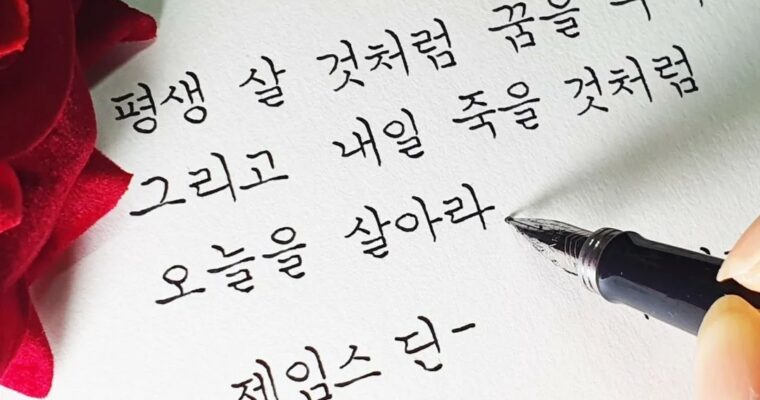 평생 살 것처럼 꿈을
그리고 내일 죽을 것처럼
오늘을 살아라
제임스 딘-